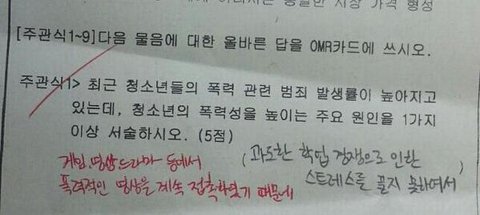 [주관식1~9]다음 물음에 대한 올바른 답을 OMR카드에 쓰시오.
주관식1> 최근 청소년들의 폭력 관련 범죄 발생률이 높아지고
있는데, 청소년의 폭력성을 높이는 주요 원인을 1가지
이상 서술하시오. (5점)
게임 영상드라마 등에서 (과도한 학업 경쟁으로 인한
폭력적인 영상을 계속 접촉하였기 때문에 스트레스를 풀지 못하여서)